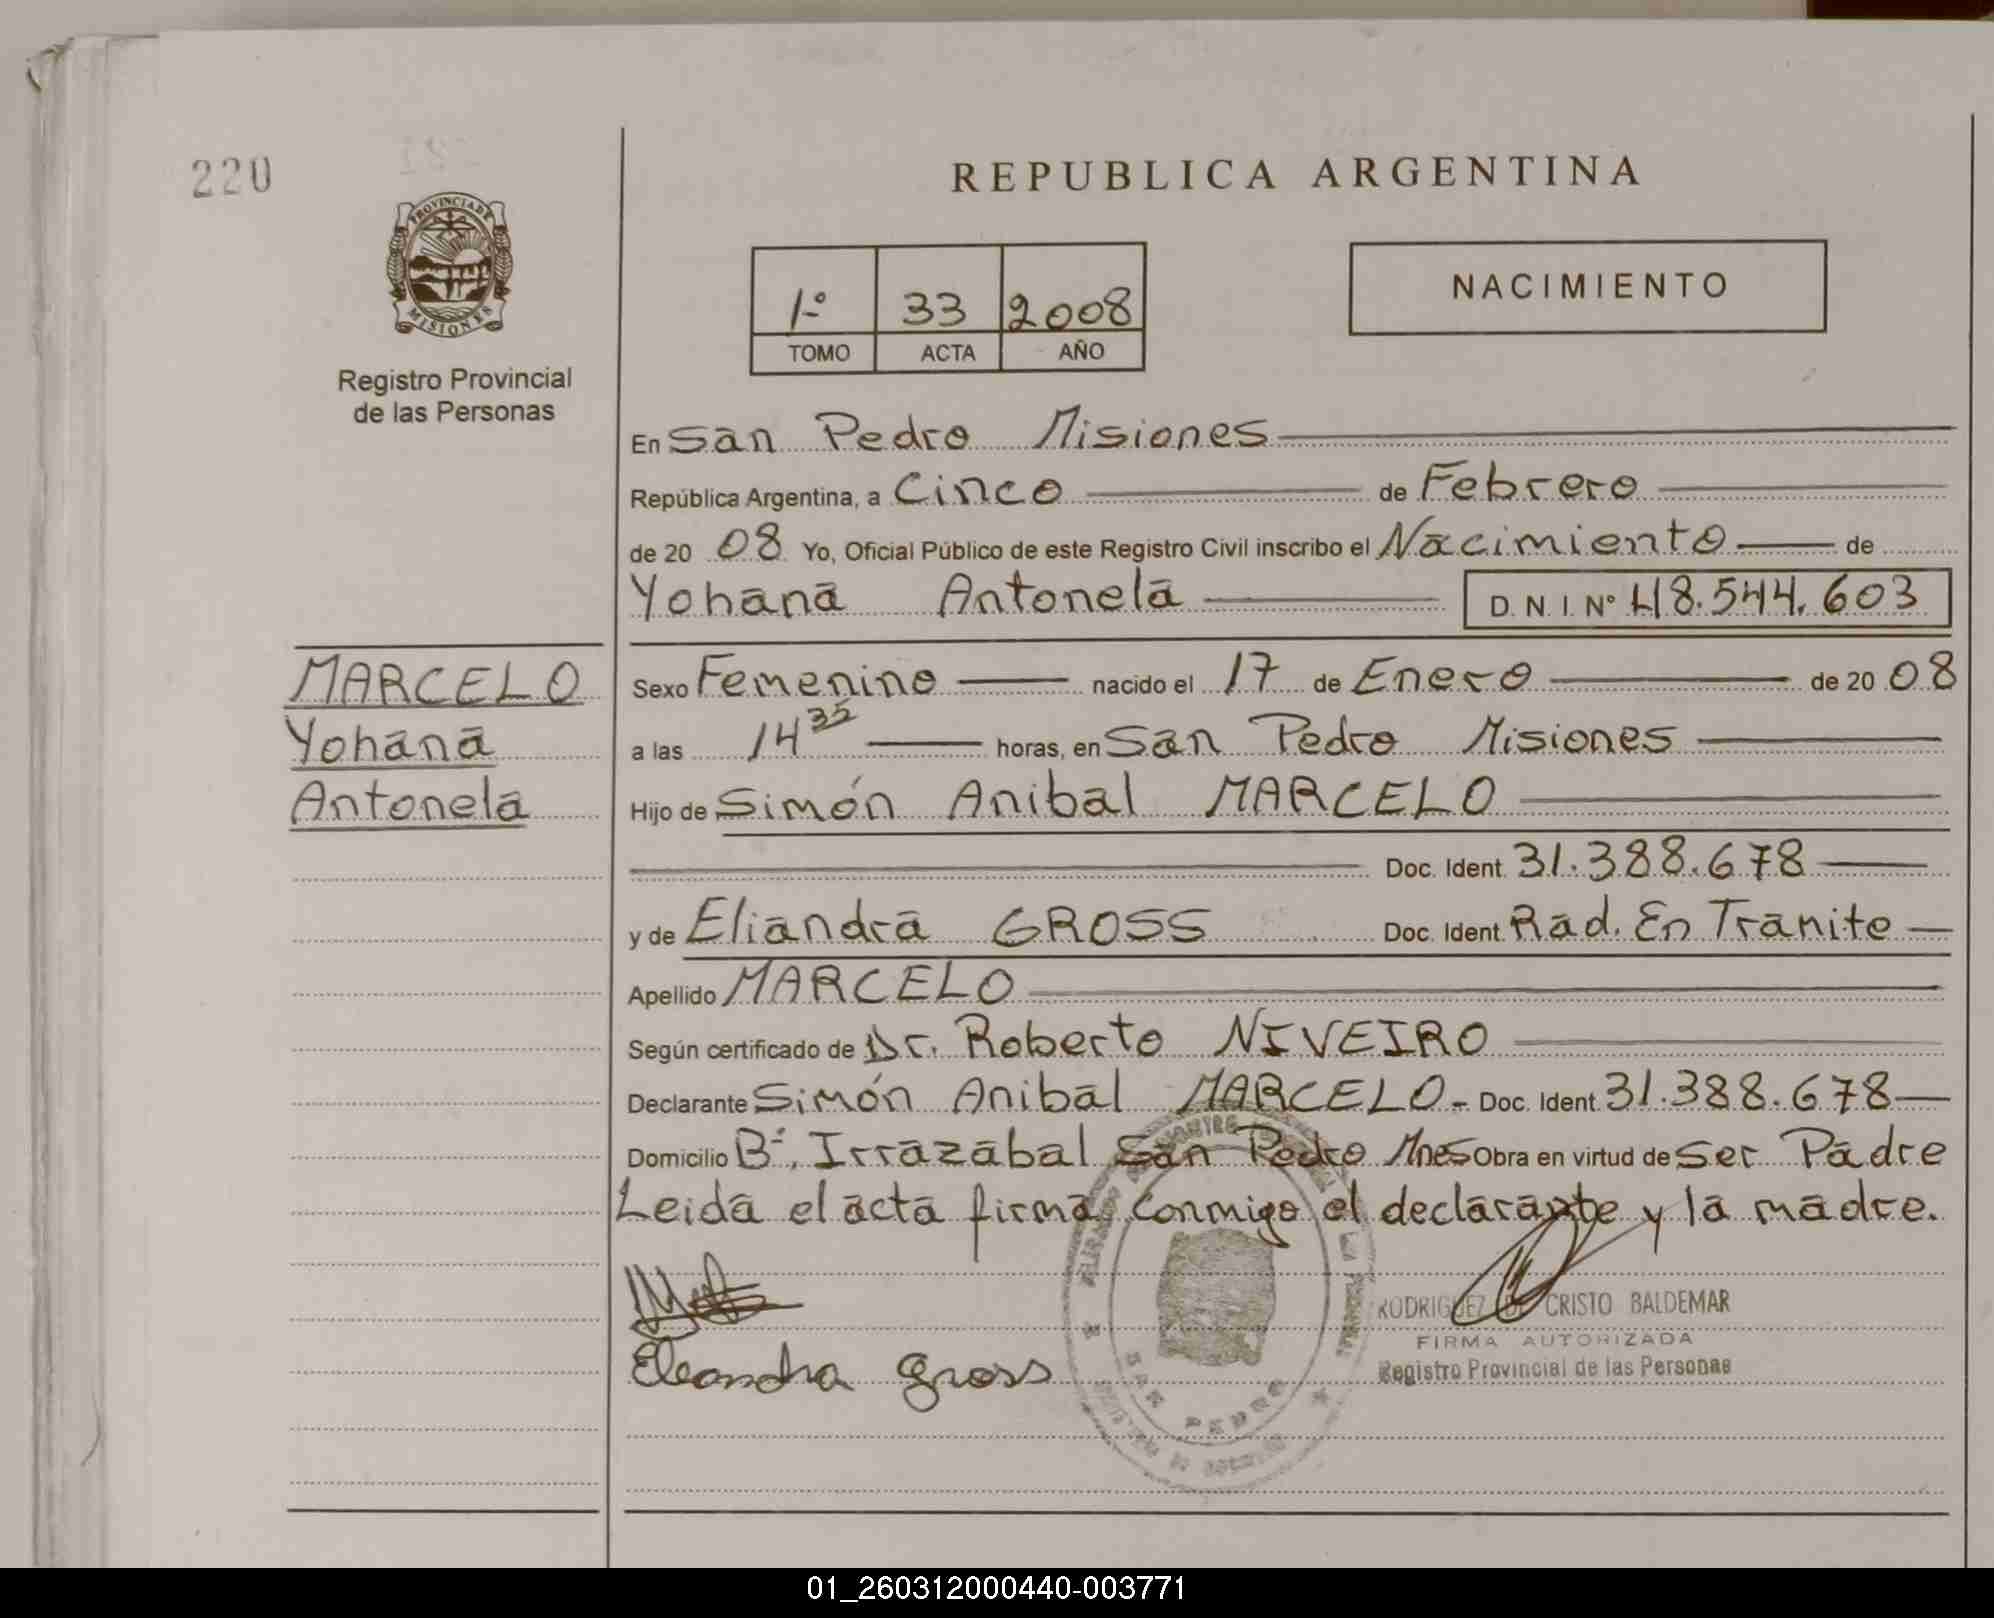 220
REPUBLICA ARGENTINA
PROVINCIA DE
MISIONES
Registro Provincial
de las Personas
1º 33 2008
TOMO ACTA AÑO
NACIMIENTO
En San Pedro Misiones
República Argentina, a Cinco de Febrero
de 20 08 Yo, Oficial Público de este Registro Civil inscribo el Nacimiento de
Yohana Antonela D.N.I. Nº 48.544.603
MARCELO
Yohana
Antonela
Sexo Femenino nacido el 17 de Enero de 20 08
a las 14 35 horas, en San Pedro Misiones
Hijo de Simón Anibal MARCELO
Doc. Ident. 31.388.678
y de Eliandra GROSS Doc. Ident. Rad. En Tranite
Apellido MARCELO
Según certificado de Dr. Roberto NIVEIRO
Declarante Simón Anibal MARCELO - Doc. Ident. 31.388.678
Domicilio Bº, Irrazabal San Pedro Mnes Obra en virtud de Ser Padre
Leida el acta firma conmigo el declarante y la madre.
Eleandra Gross
SAN PEDRO
RODRIGUEZ DE CRISTO BALDEMAR
FIRMA AUTORIZADA
Registro Provincial de las Personas
01_260312000440-003771